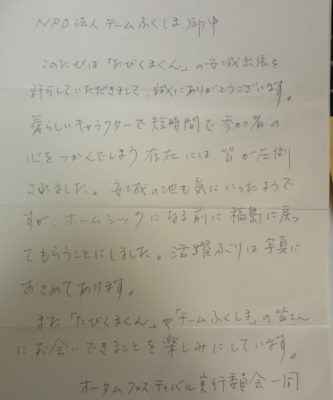 NPO法人チームふくしま御中
このたびは「たびくまくん」の安城出張を
許可していただきまして、誠にありがとうございます。
愛らしいキャラクターで短時間で参加者の
心をつかんでしまう存在には皆が圧倒
されました。安城の地も気にいったようで
すが、ホームシックになる前に福島に戻っ
てもらうことにしました。活躍ぶりは写真に
おさめてあります。
また「たびくまくん」や「チームふくしま」の皆さん
にお会いできることを楽しみにしています。
オータムフェスティバル実行委員会一同